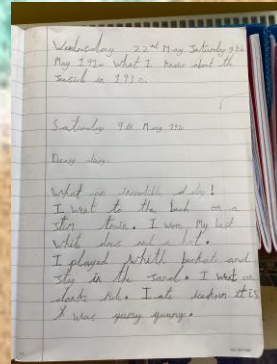 Wednesday 22nd May Saturday 9th
May 191. What I know about th
seasid in 1910.
Saturday 9th May 191
Deary diary
What an incredible day!
I went to the bech on a
stim train. I wore My best
white dres and a hat.
I played whith buckets and
in the sand. I went on
donky ride. I ate icecream it is
X was yumy yumy.